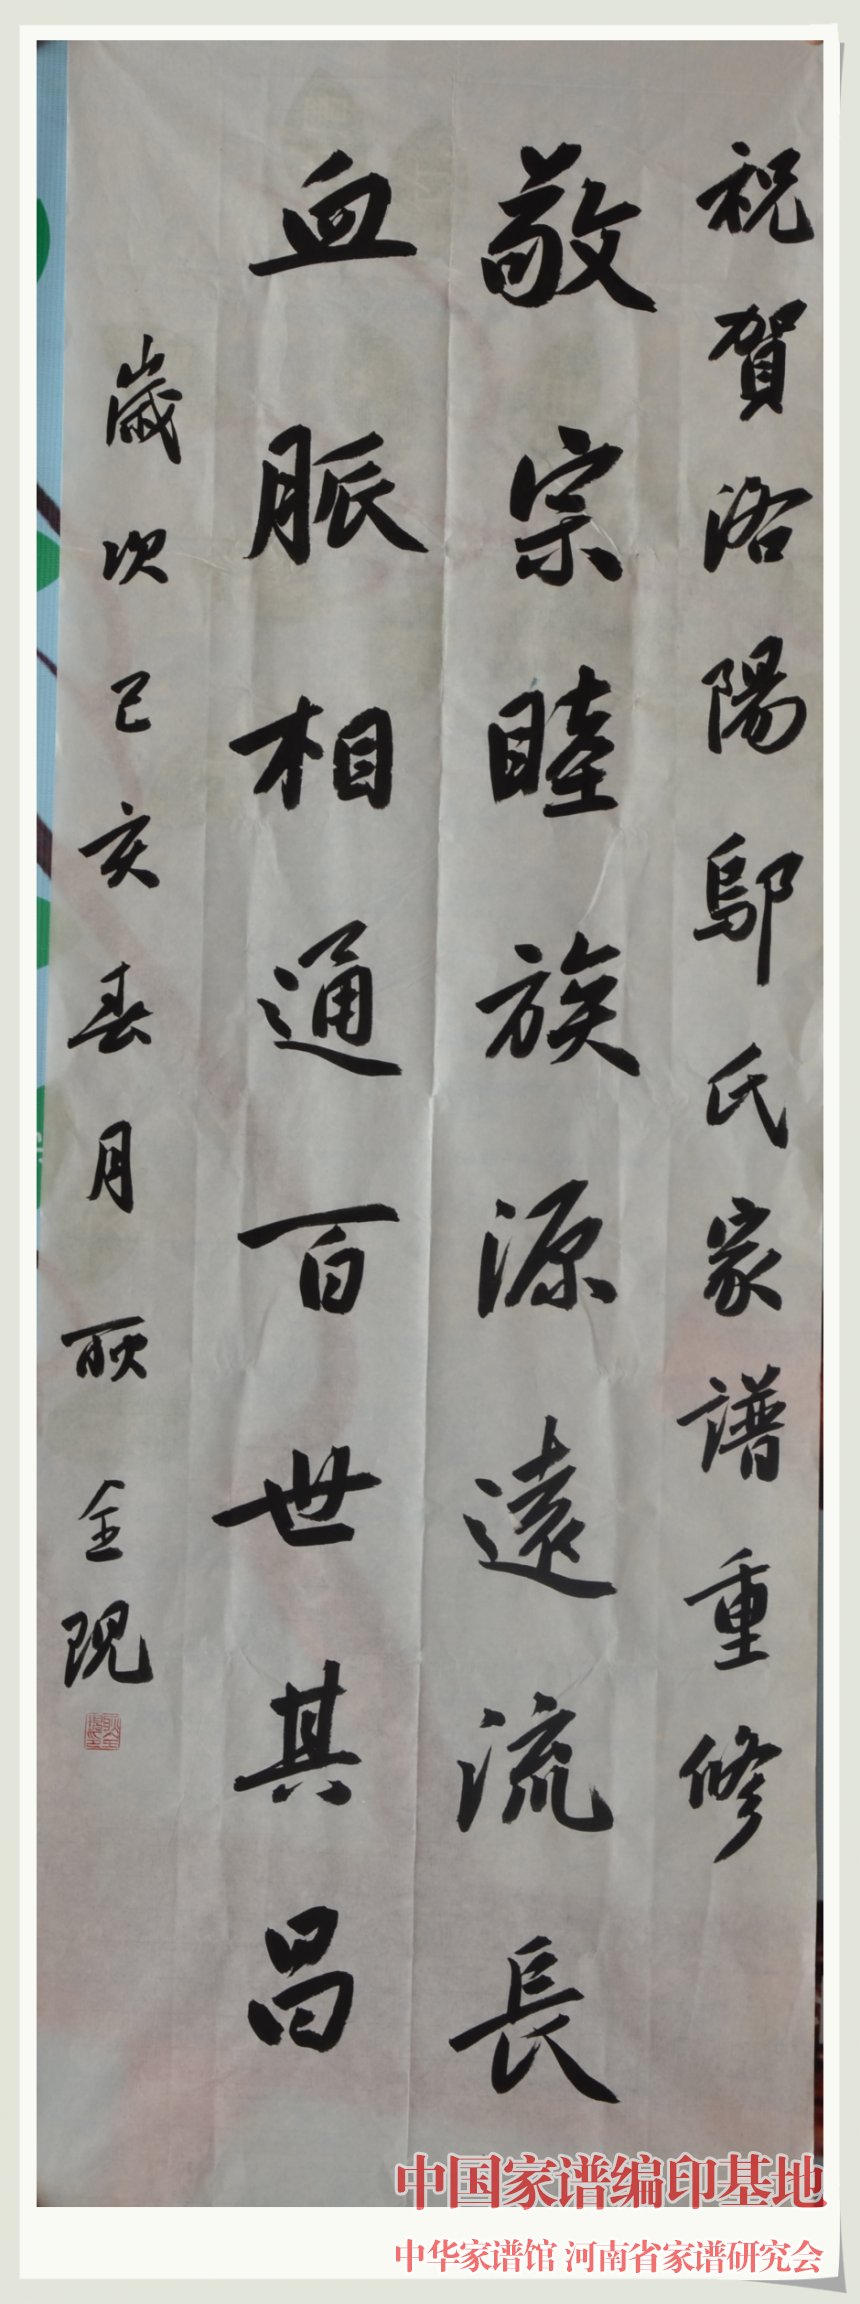 祝賀洛陽鄔氏家譜重修
敬宗睦族源遠流長
血脈相通百世其昌
歲次己亥春月耿全
中国家谱编印基地
中华家谱馆 河南省家谱研究会